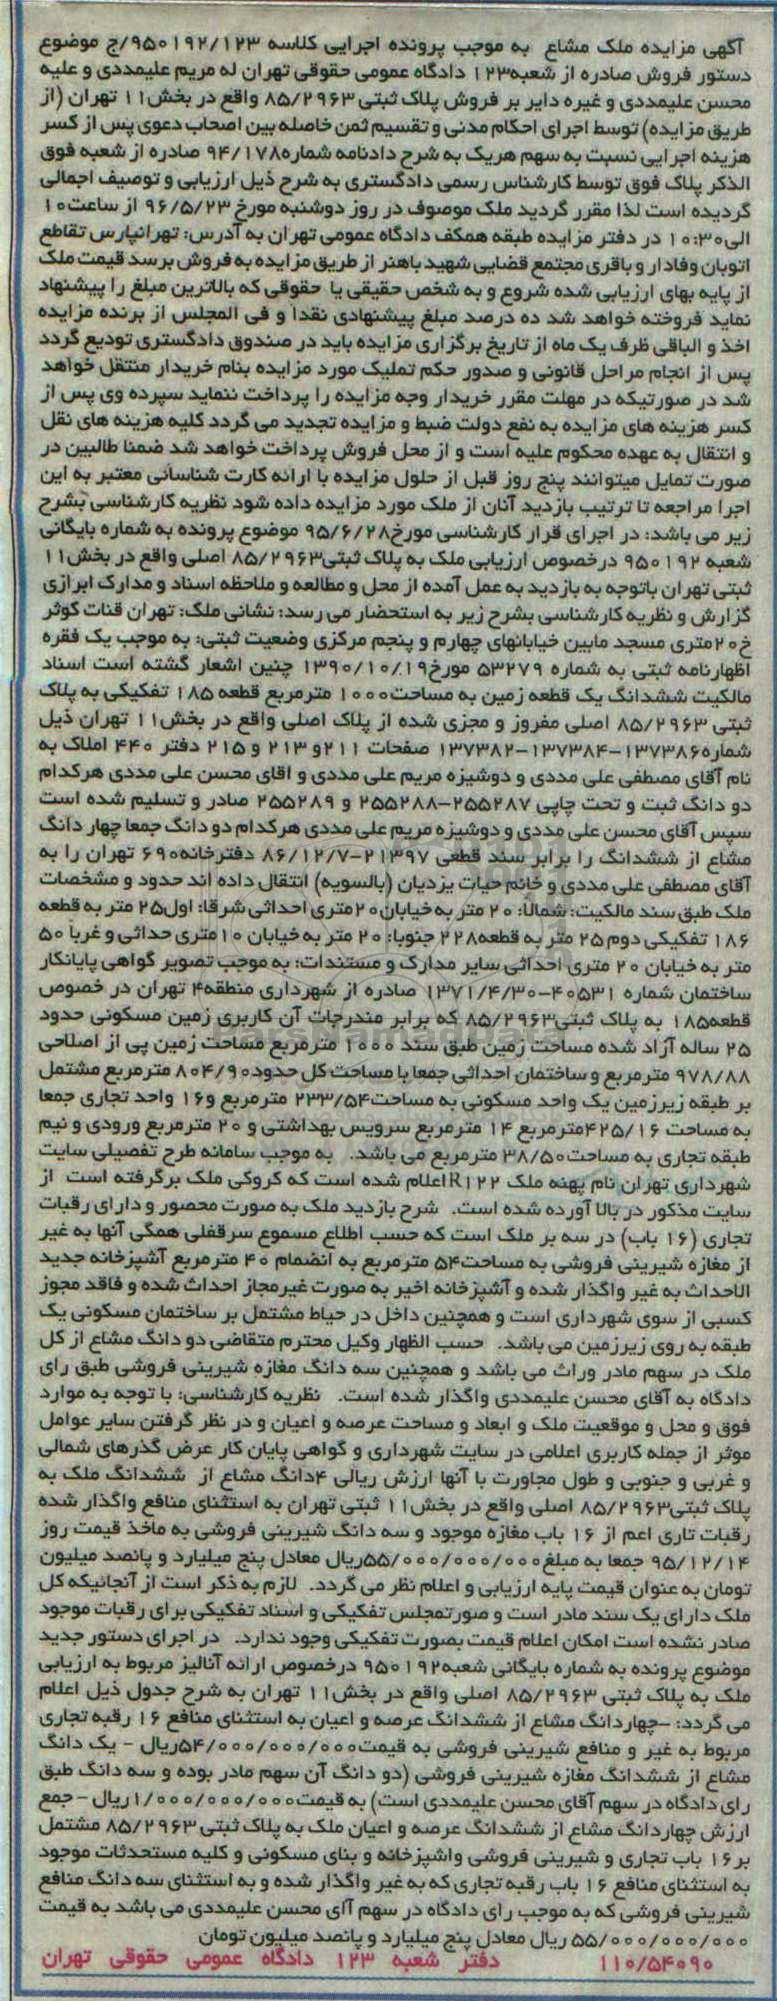 آگهی مزایده ملک مشاع به موجب پرونده اجرایی کلاسه ۹۵۰۱۹۲/۱۲۳/ج موضوع
دستور فروش صادره از شعبه۱۲۳ دادگاه عمومی حقوقی تهران له مریم علیمددی و علیه
محسن علیمددی و غیره دایر بر فروش پلاک ثبتی ۸۵/۲۹۶۳ واقع در بخش۱۱ تهران (از
طریق مزایده) توسط اجرای احکام مدنی و تقسیم ثمن حاصله بین اصحاب دعوی پس از کسر
هزینه اجرایی نسبت به سهم هریک به شرح دادنامه شماره۹۴/۱۷۸ صادره از شعبه فوق
الذکر پلاک فوق توسط کارشناس رسمی دادگستری به شرح ذیل ارزیابی و توصیف اجمالی
گردیده است لذا مقرر گردید ملک موصوف در روز دوشنبه مورخ ۹۶/۵/۲۳ از ساعت۱۰
الی۱۰:۳۰ در دفتر مزایده طبقه همکف دادگاه عمومی تهران به آدرس: تهرانپارس تقاطع
اتوبان وفادار و باقری مجتمع قضایی شهید باهنر از طریق مزایده به فروش برسد قیمت ملک
از پایه بهای ارزیابی شده شروع و به شخص حقیقی یا حقوقی که بالاترین مبلغ را پیشنهاد
نماید فروخته خواهد شد ده درصد مبلغ پیشنهادی نقدا و فی المجلس از برنده مزایده
اخذ و الباقی ظرف یک ماه از تاریخ برگزاری مزایده باید در صندوق دادگستری تودیع گردد
پس از انجام مراحل قانونی و صدور حکم تملیک مورد مزایده بنام خریدار منتقل خواهد
شد در صورتیکه در مهلت مقرر خریدار وجه مزایده را پرداخت ننماید سپرده وی پس از
کسر هزینه های مزایده به نفع دولت ضبط و مزایده تجدید می گردد کلیه هزینه های نقل
و انتقال به عهده محکوم علیه است و از محل فروش پرداخت خواهد شد ضمنا طالبین در
صورت تمایل میتوانند پنج روز قبل از حلول مزایده با ارائه کارت شناسائی معتبر به این
اجرا مراجعه تا ترتیب بازدید آنان از ملک مورد مزایده داده شود نظریه کارشناسی بشرح
زیر می باشد: در اجرای قرار کارشناسی مورخ۹۵/۶/۲۸ موضوع پرونده به شماره بایگانی
شعبه ۹۵۰۱۹۲ درخصوص ارزیابی ملک به پلاک ثبتی۸۵/۲۹۶۳ اصلی واقع در بخش۱۱
ثبتی تهران باتوجه به بازدید به عمل آمده از محل و مطالعه و ملاحظه اسناد و مدارک ابرازی
گزارش و نظریه کارشناسی بشرح زیر به استحضار می رسد: نشانی ملک: تهران قنات کوثر
خ۲۰متری مسجد مابین خیابانهای چهارم و پنجم مرکزی وضعیت ثبتی: به موجب یک فقره
اظهارنامه ثبتی به شماره ۵۳۲۷۹ مورخ۱۳۹۰/۱۰/۱۹ چنین اشعار گشته است اسناد
مالکیت ششدانگ یک قطعه زمین به مساحت۱۰۰۰ مترمربع قطعه ۱۸۵ تفکیکی به پلاک
ثبتی ۸۵/۲۹۶۳ اصلی مفروز و مجزی شده از پلاک اصلی واقع در بخش۱۱ تهران ذیل
شماره۱۳۷۳۸۶-۱۳۷۳۸۴-۱۳۷۳۸۲ صفحات ۲۱۱و ۲۱۳ و ۲۱۵ دفتر ۴۴۰ املاک به
نام آقای مصطفی علی مددی و دوشیزه مریم علی مددی و اقای محسن علی مددی هرکدام
دو دانگ ثبت و تحت چاپی ۲۵۵۲۸۷-۲۵۵۲۸۸ و ۲۵۵۲۸۹ صادر و تسلیم شده است
سپس آقای محسن علی مددی و دوشیزه مریم علی مددی هرکدام دو دانگ جمعا چهار دانگ
مشاع از ششدانگ را برابر سند قطعی ۲۱۳۹۷-۸۶/۱۲/۷ دفترخانه۶۹۰ تهران را به
آقای مصطفی علی مددی و خانم حیات یزدیان (بالسویه) انتقال داده اند حدود و مشخصات
ملک طبق سند مالکیت: شمالا: ۲۰ متر به خیابان۲۰متری احداثی شرقا: اول۲۵ متر به قطعه
۱۸۶ تفکیکی دوم ۲۵ متر به قطعه۲۲۸ جنوبا: ۲۰ متر به خیابان ۱۰متری حداثی و غربا ۵۰
متر به خیابان ۲۰ متری احداثی سایر مدارک و مستندات: به موجب تصویر گواهی پایانکار
ساختمان شماره ۴۰۵۳۱-۱۳۷۱/۴/۳۰ صادره از شهرداری منطقه۴ تهران در خصوص
قطعه۱۸۵ به پلاک ثبتی۸۵/۲۹۶۳ که برابر مندرجات آن کاربری زمین مسکونی حدود
۲۵ ساله آزاد شده مساحت زمین طبق سند ۱۰۰۰ مترمربع مساحت زمین پی از اصلاحی
۹۷۸/۸۸ مترمربع و ساختمان احداثی جمعا با مساحت کل حدود۸۰۴/۹۰ مترمربع مشتمل
بر طبقه زیرزمین یک واحد مسکونی به مساحت۲۳۳/۵۴ مترمربع و۱۶ واحد تجاری جمعا
به مساحت ۴۲۵/۱۶مترمربع ۱۴ مترمربع سرویس بهداشتی و ۲۰ مترمربع ورودی و نیم
طبقه تجاری به مساحت۳۸/۵۰ مترمربع می باشد. به موجب سامانه طرح تفصیلی سایت
شهرداری تهران نام پهنه ملک R۱۲۲اعلام شده است که کروکی ملک برگرفته است از
سایت مذکور در بالا آورده شده است. شرح بازدید ملک به صورت محصور و دارای رقبات
تجاری (۱۶ باب) در سه بر ملک است که حسب اطلاع مسموع سرقفلی همگی آنها به غیر
از مغازه شیرینی فروشی به مساحت۵۴ مترمربع به انضمام ۴۰ مترمربع آشپزخانه جدید
الاحداث به غیر واگذار شده و آشپزخانه اخیر به صورت غیرمجاز احداث شده و فاقد مجوز
کسبی از سوی شهرداری است و همچنین داخل در حیاط مشتمل بر ساختمان مسکونی یک
طبقه به روی زیرزمین می باشد. حسب الظهار وکیل محترم متقاضی دو دانگ مشاع از کل
ملک در سهم مادر وراث می باشد و همچنین سه دانگ مغازه شیرینی فروشی طبق رای
دادگاه به آقای محسن علیمددی واگذار شده است. نظریه کارشناسی: با توجه به موارد
فوق و محل و موقعیت ملک و ابعاد و مساحت عرصه و اعیان و در نظر گرفتن سایر عوامل
موثر از جمله کاربری اعلامی در سایت شهرداری و گواهی پایان کار عرض گذرهای شمالی
و غربی و جنوبی و طول مجاورت با آنها ارزش ریالی ۴دانگ مشاع از ششدانگ ملک به
پلاک ثبتی۸۵/۲۹۶۳ اصلی واقع در بخش۱۱ ثبتی تهران به استثنای منافع واگذار شده
رقبات تاری اعم از ۱۶ باب مغازه موجود و سه دانگ شیرینی فروشی به ماخذ قیمت روز
۹۵/۱۲/۱۴ جمعا به مبلغ۵۵/۰۰۰/۰۰۰/۰۰۰ریال معادل پنج میلیارد و پانصد میلیون
تومان به عنوان قیمت پایه ارزیابی و اعلام نظر می گردد. لازم به ذکر است از آنجائیکه کل
ملک دارای یک سند مادر است و صورتمجلس تفکیکی و اسناد تفکیکی برای رقبات موجود
صادر نشده است امکان اعلام قیمت بصورت تفکیکی وجود ندارد. در اجرای دستور جدید
موضوع پرونده به شماره بایگانی شعبه۹۵۰۱۹۲ درخصوص ارائه آنالیز مربوط به ارزیابی
ملک به پلاک ثبتی ۸۵/۲۹۶۳ اصلی واقع در بخش۱۱ تهران به شرح جدول ذیل اعلام
می گردد: -چهاردانگ مشاع از ششدانگ عرصه و اعیان به استثنای منافع ۱۶ رقبه تجاری
مربوط به غیر و منافع شیرینی فروشی به قیمت۵۴/۰۰۰/۰۰۰/۰۰۰ریال - یک دانگ
مشاع از ششدانگ مغازه شیرینی فروشی (دو دانگ آن سهم مادر بوده و سه دانگ طبق
رای دادگاه در سهم آقای محسن علیمددی است) به قیمت۱/۰۰۰/۰۰۰/۰۰۰ ریال - جمع
ارزش چهاردانگ مشاع از ششدانگ عرصه و اعیان ملک به پلاک ثبتی ۸۵/۲۹۶۳ مشتمل
بر۱۶ باب تجاری و شیرینی فروشی واشپزخانه و بنای مسکونی و کلیه مستحدثات موجود
به استثنای منافع ۱۶ باب رقبه تجاری که به غیر واگذار شده و به استثنای سه دانگ منافع
شیرینی فروشی که به موجب رای دادگاه در سهم آای محسن علیمددی می باشد به قیمت
۵۵/۰۰۰/۰۰۰/۰۰۰ ریال معادل پنج میلیارد و پانصد میلیون تومان
۱۱۰/۵۴۰۹۰ دفتر شعبه ۱۲۳ دادگاه عمومی حقوقی تهران